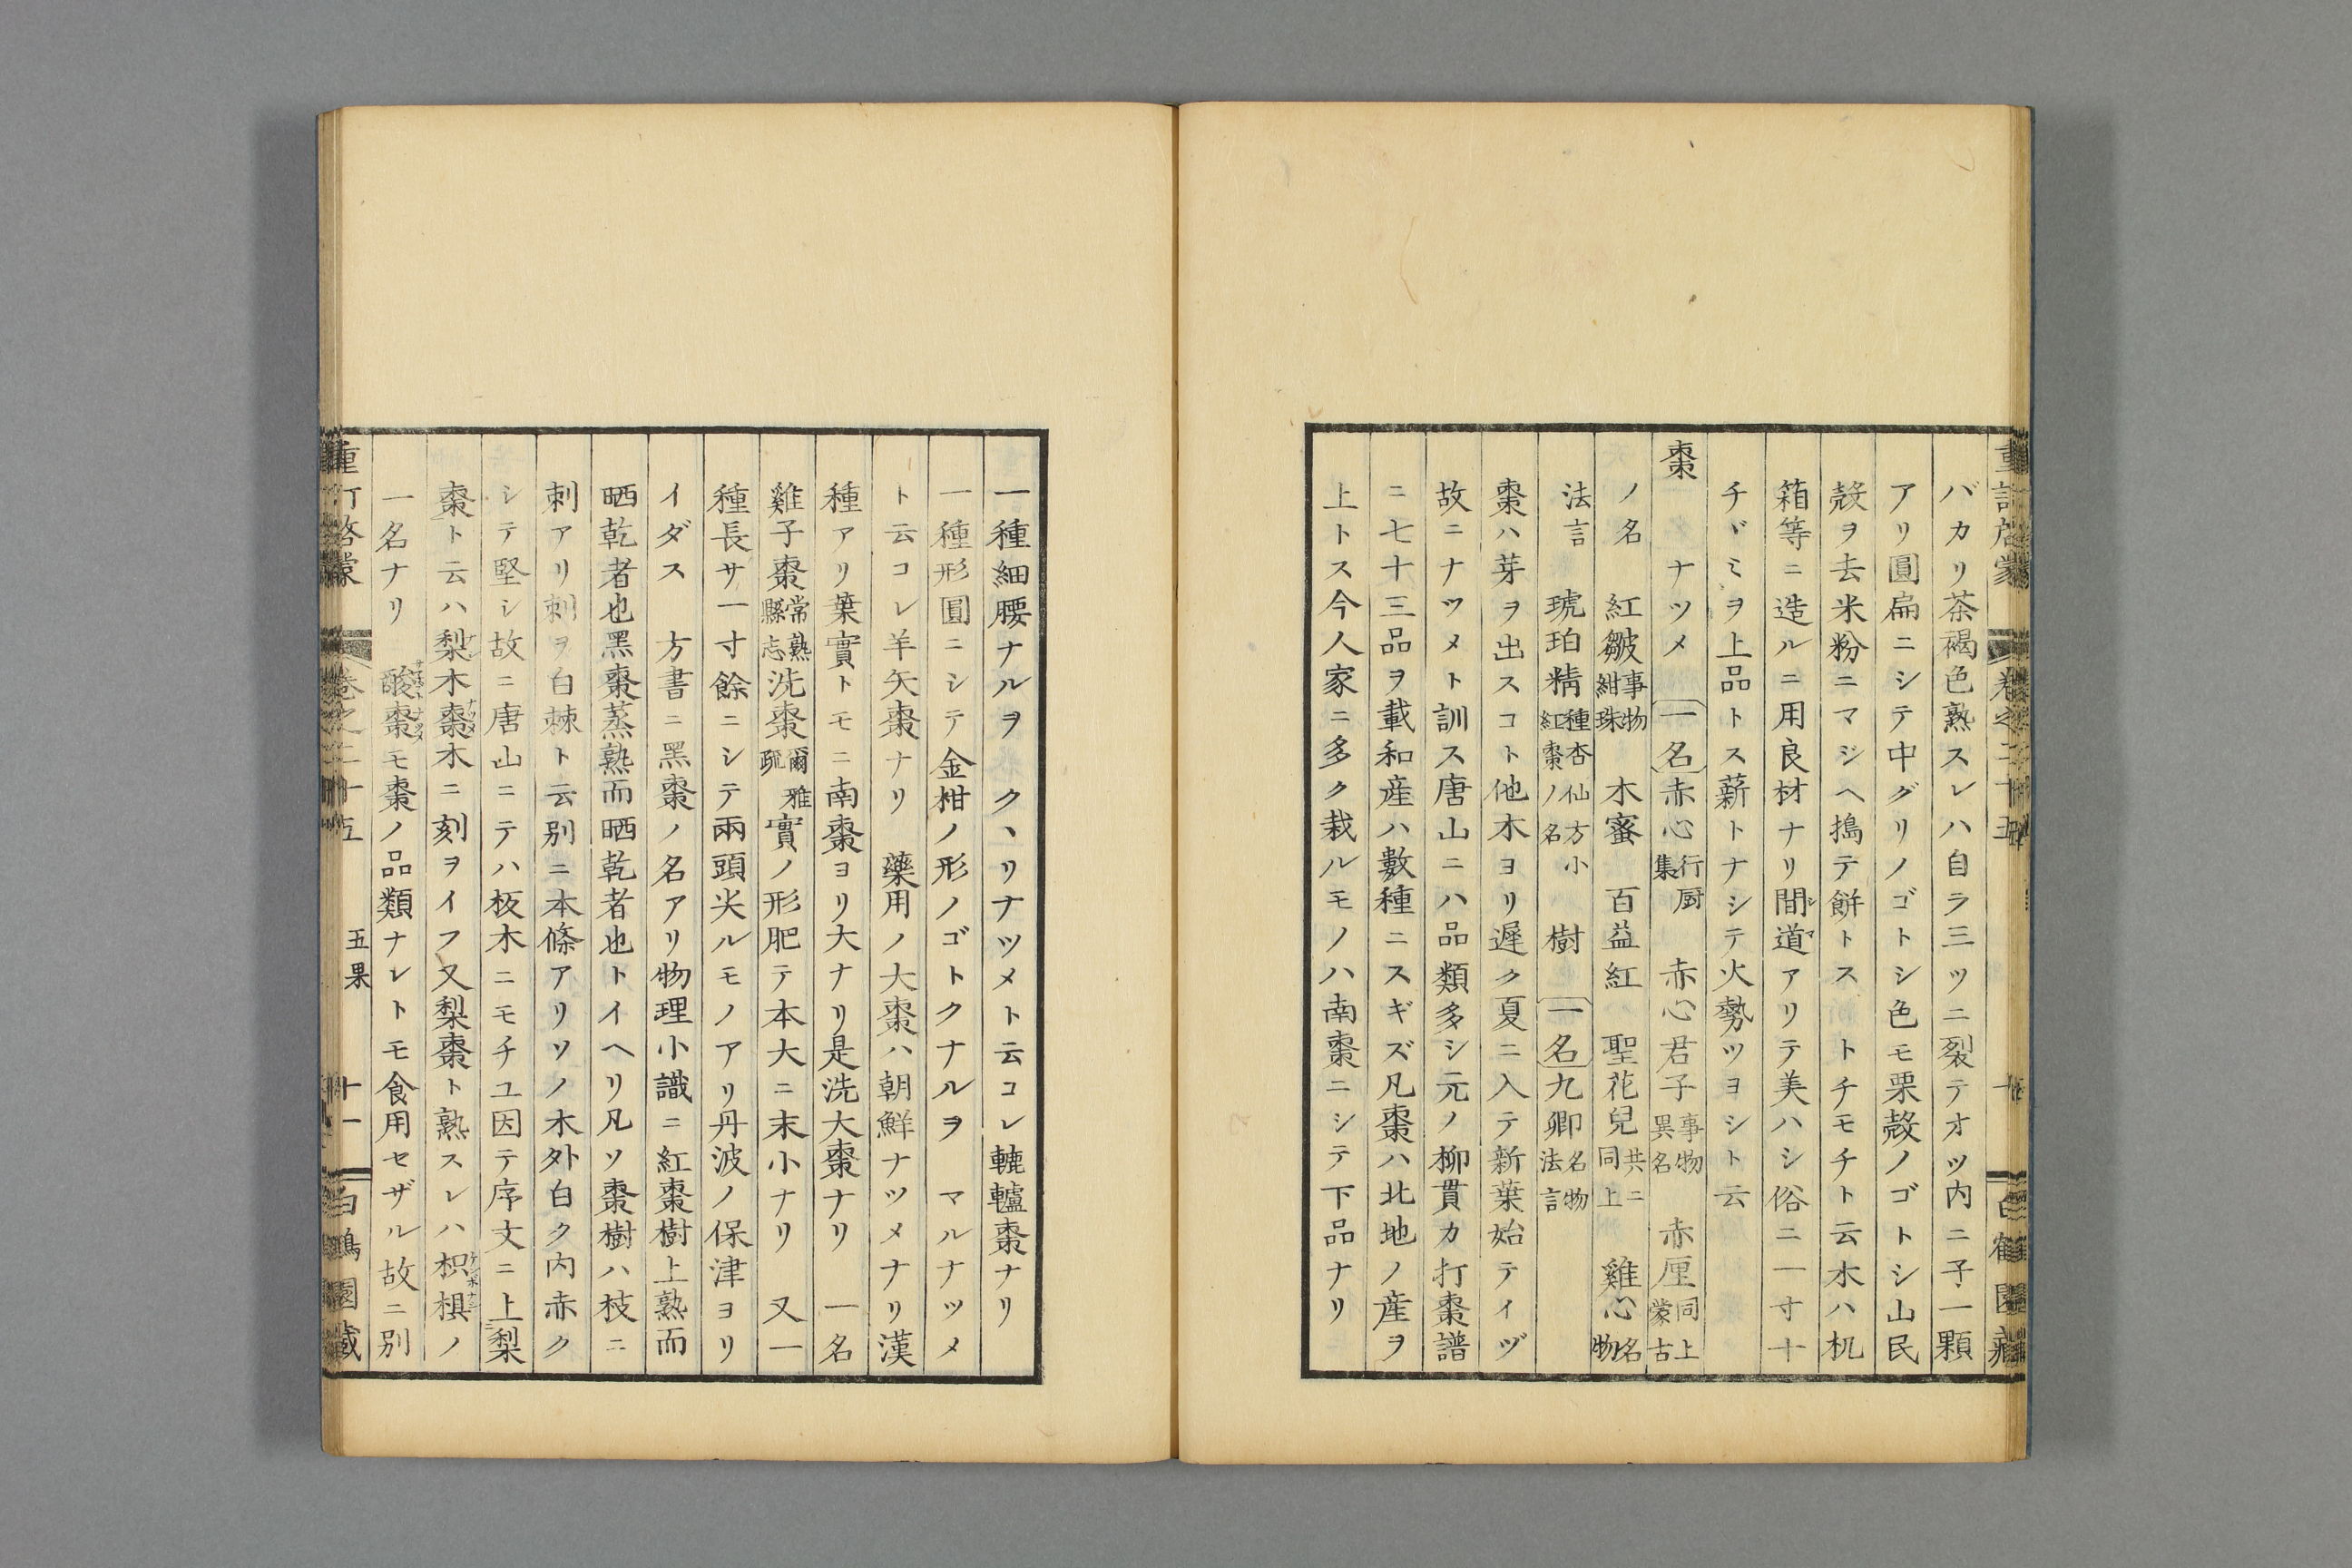 バカリ茶褐色熟スレハ自ラ三ツニ裂テオツ内ニ子一顆
アリ圓扁ニシテ中グリノゴトシ色モ栗殼ノゴトシ山民
殼ヲ去米粉ニマジヘ搗テ餅トス トチモチト云木ハ机
箱等ニ造ルニ用良材ナリ間道アリテ美ハシ俗ニ一寸十
チヾミヲ上品トス薪トナシテ火勢ツヨシト云
棗 ナツメ 一名赤心行厨集 赤心君子事物異名 赤厘同上蒙古
ノ名 紅皺事物紺珠 木蜜 百益紅 聖花兒共ニ同上 雞心名物
法言 琥珀精種杏仙方小紅棗ノ名 樹 一名九卿名物法言
棗ハ芽ヲ出スコト他木ヨリ遲ク夏ニ入テ新葉始テイヅ
故ニナツメト訓ス唐山ニハ品類多シ元ノ柳貫カ打棗譜
ニ七十三品ヲ載和産ハ數種ニスギズ凡棗ハ北地ノ産ヲ
上トス今人家ニ多ク栽ルモノハ南棗ニシテ下品ナリ
一種細腰ナルヲ クヽリナツメト云コレ轆轤棗ナリ
一種形圓ニシテ金柑ノ形ノゴトクナルヲ マルナツメ
ト云コレ羊矢棗ナリ 藥用ノ大棗ハ朝鮮ナツメナリ漢
種アリ葉實トモニ南棗ヨリ大ナリ是洗大棗ナリ 一名
雞子棗常熟縣志洗棗爾雅疏實ノ形肥テ本大ニ末小ナリ 又一
種長サ一寸餘ニシテ兩頭尖ルモノアリ丹波ノ保津ヨリ
イダス 方書ニ黑棗ノ名アリ物理小識ニ紅棗樹上熟而
晒乾者也黑棗蒸熟而晒乾者也トイヘリ凡ソ棗樹ハ枝ニ
刺アリ刺ヲ白棘ト云别ニ本條アリソノ木外白ク内赤ク
シテ堅シ故ニ唐山ニテハ板木ニモチユ因テ序文ニ上梨
棗ト云ハ梨木棗木ニ刻ヲイフ又梨棗ト熟スレハ枳椇ノ
一名ナリ 酸棗モ棗ノ品類ナレトモ食用セザル故ニ别
重訂啓蒙 卷之二十五 五果 十一